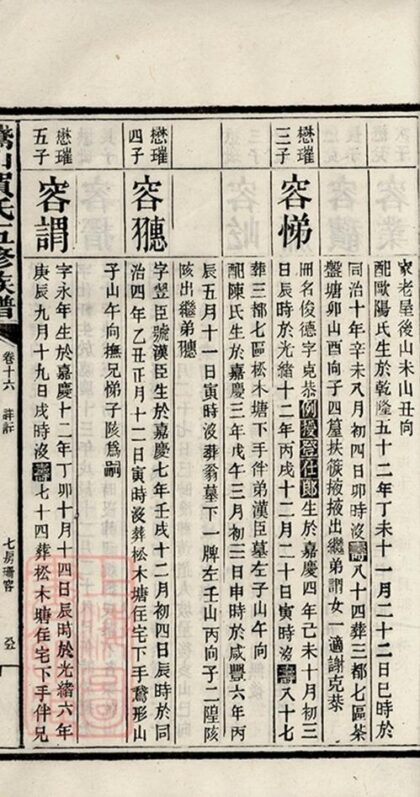 家老屋後山未山丑向
配歐陽氏生於乾隆五十二年丁未十一月二十二日巳時於
同治十年辛未八月初四日卯時沒壽八十四葬三都七區茶
盤塘卯山酉向子四篁扶掖掖出繼弟謂女一適謝克恭
懋璀
三子
容悌
冊名俊德字克恭例授登仕郎生於嘉慶四年己未十月初三
日辰時於光緒十二年丙戌十二月二十日寅時沒壽八十七
葬三都七區松木塘下手伴弟漢臣墓左子山午向
配陳氏生於嘉慶三年戊午三月初二日申時於咸豐六年丙
辰五月十一日寅時沒葬翁墓下一牌左壬山丙向子二隍陔
陔出繼弟
懋璀
四子
字翌臣號漢臣生於嘉慶七年壬戌十二月初四日辰時於同
治四年乙丑正月十二日寅時沒葬松木塘住宅下手鵞形山
子山午向撫兄悌子陔爲嗣
懋璀
五子
容謂
字永年生於嘉慶十二年丁卯十月十四日辰時於光緒六年
庚辰九月十九日戌時沒壽七十四葬松木塘住宅下手伴兄
山賀氏五修族譜
卷十六
七房 容